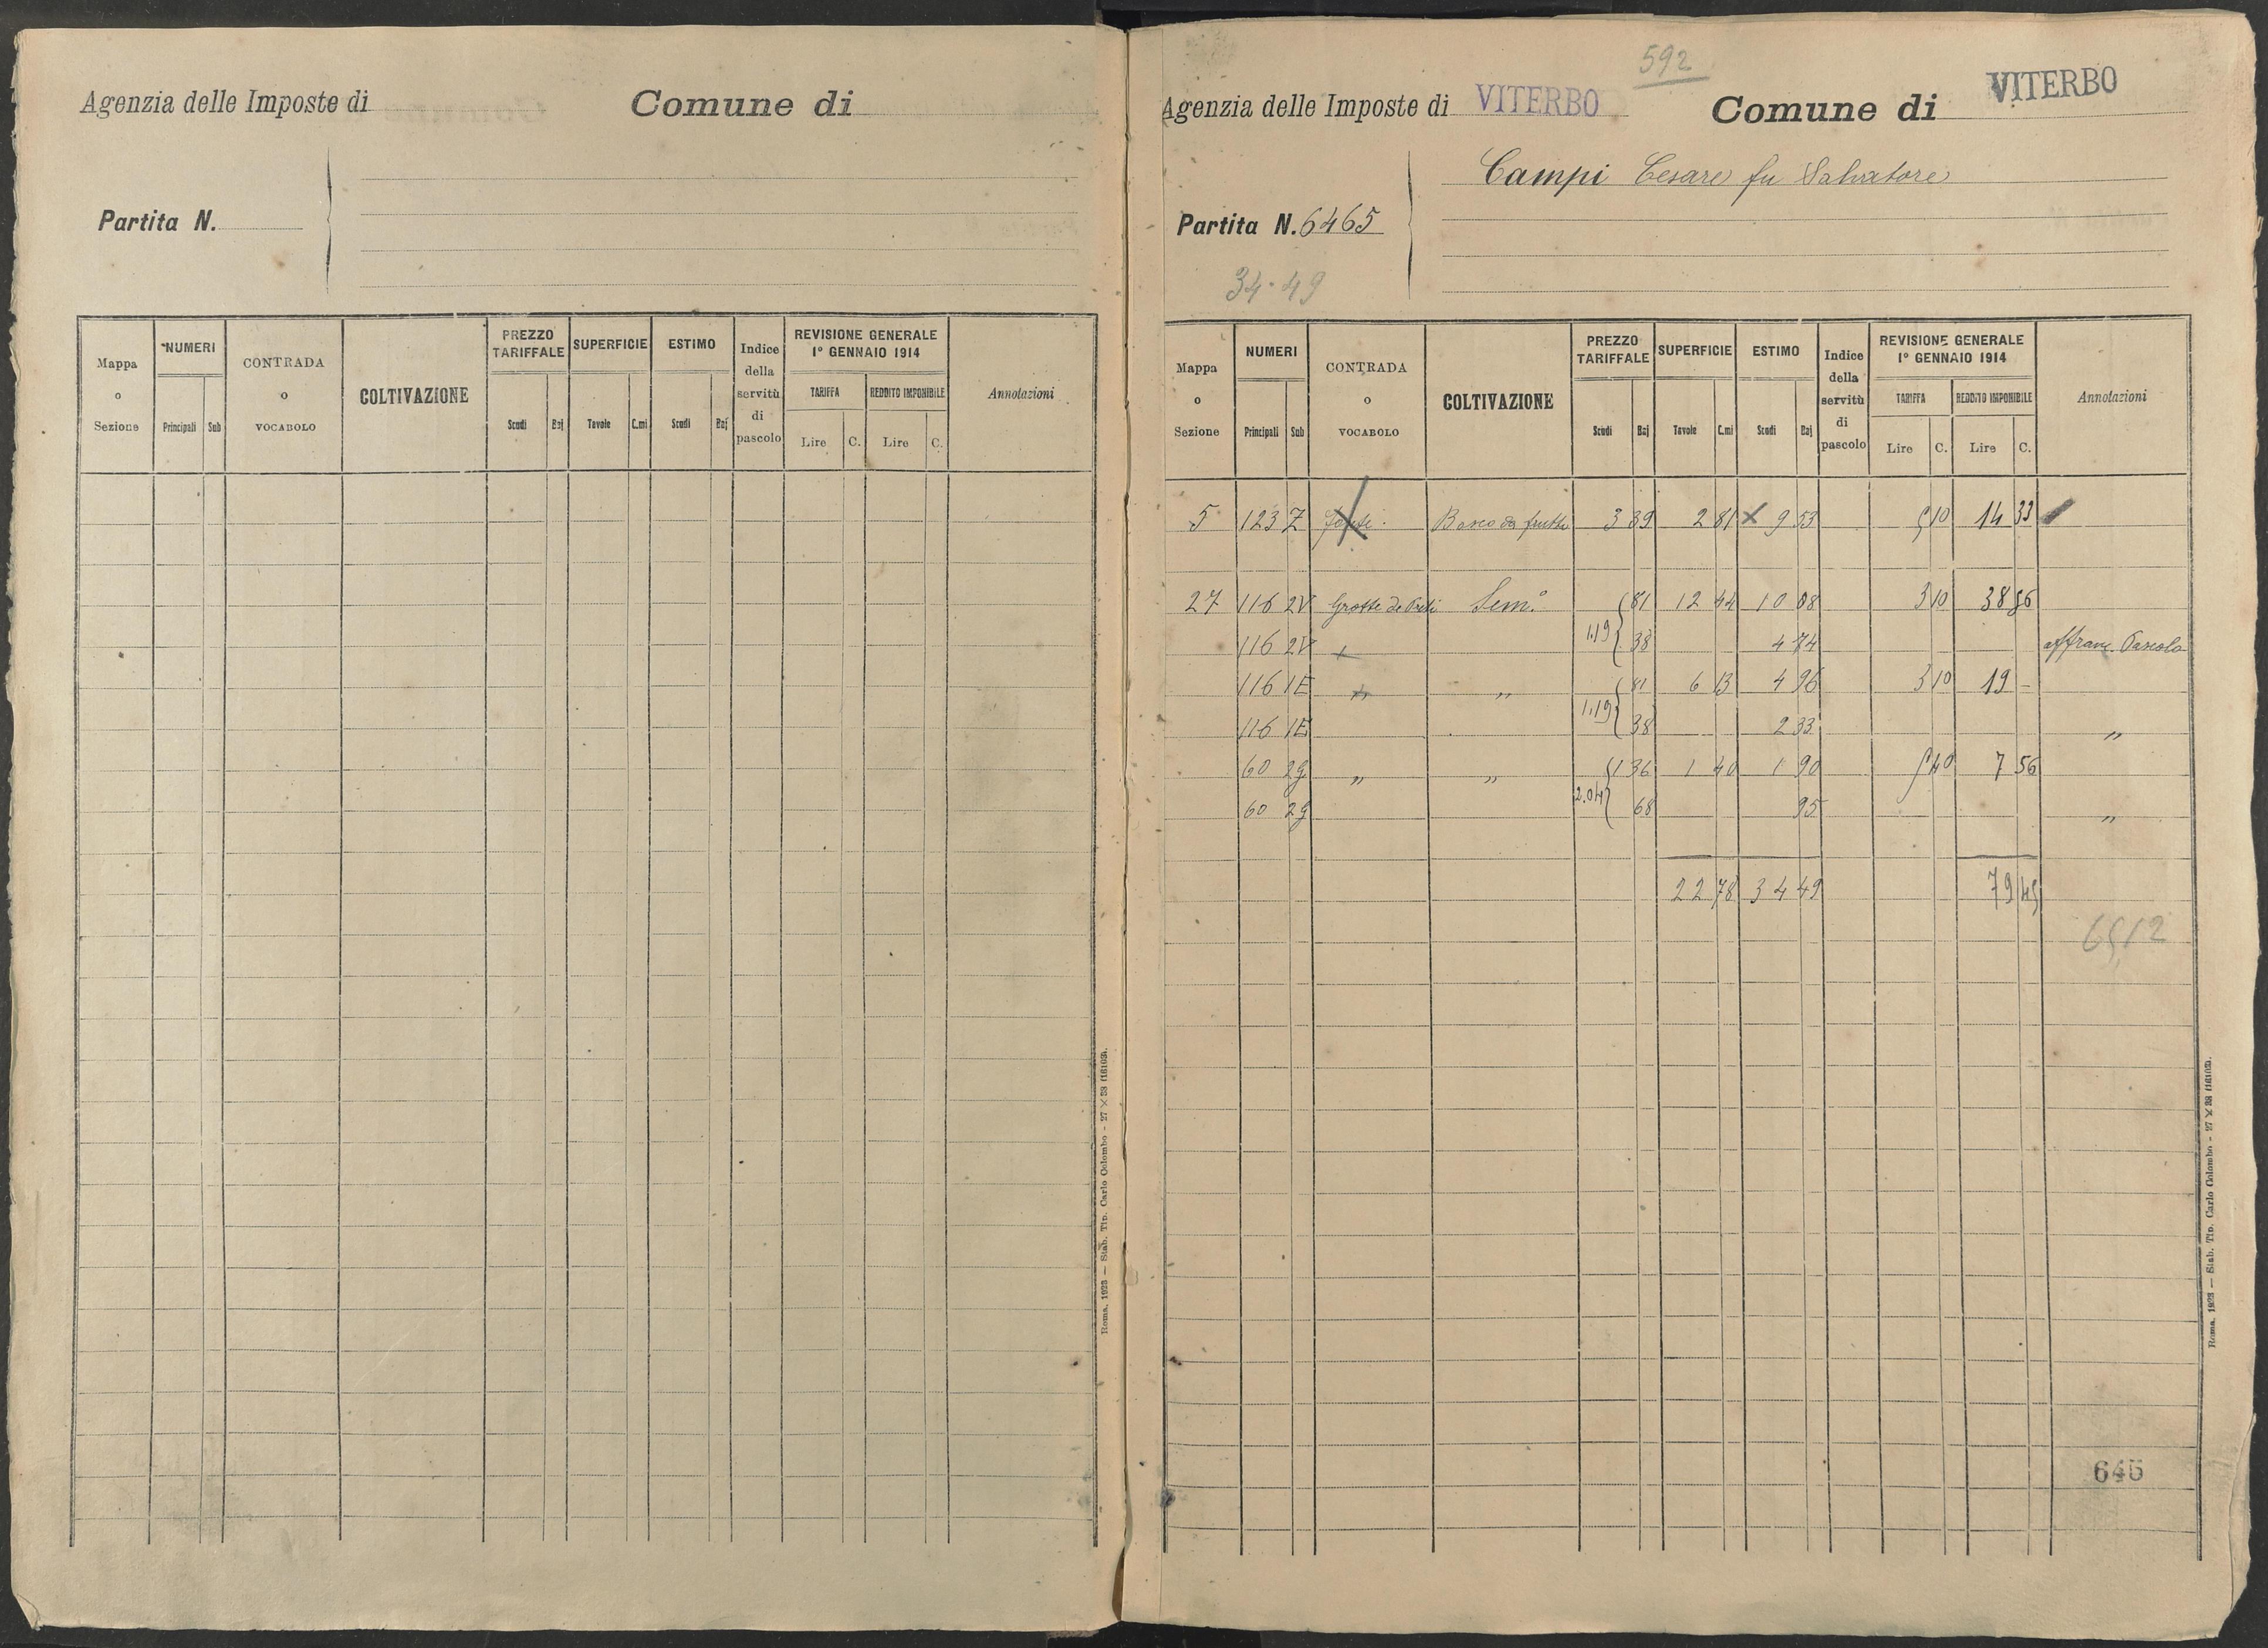 Agenzia delle Imposte di
Comune di
Partita N.
Mappa o Sezione
NUMERI
Principali Sub
CONTRADA o VOCABOLO
COLTIVAZIONE
PREZZO TARIFFALE
Scudi Baj
SUPERFICIE
Tavole C.mi
ESTIMO
Scudi Baj
Indice della servitù di pascolo
REVISIONE GENERALE
1° GENNAIO 1914
TARIFFA
Lire C.
REDDITO IMPONIBILE
Lire C.
Annotazioni
Roma, 1923 — Stab. Tip. Carlo Colombo - 27 × 38 (16103).
592
Agenzia delle Imposte di VITERBO
Comune di VITERBO
Campi Cesare fu Salvatore
Partita N. 6465
34.49
Mappa o Sezione
NUMERI
Principali Sub
CONTRADA o VOCABOLO
COLTIVAZIONE
PREZZO TARIFFALE
Scudi Baj
SUPERFICIE
Tavole C.mi
ESTIMO
Scudi Baj
Indice della servitù di pascolo
REVISIONE GENERALE
1° GENNAIO 1914
TARIFFA
Lire C.
REDDITO IMPONIBILE
Lire C.
Annotazioni
5 123 Z Bosco da frutto 3 39 2 81 × 9 53 5 10 14 33
27 116 2V Grotte de Sem.° 81 12 44 10 08 3 10 38 56
116 2V 1.19 38 4 74 affranc. Pascolo
116 1E " " 81 6 13 4 96 3 10 19 -
116 1E 1.19 38 2 33 "
60 2g " " 1 36 1 40 1 90 5 40 7 56
60 2g 2.04 68 95 "
22 78 34 49 79 45
6512
645
Roma, 1923 — Stab. Tip. Carlo Colombo - 27 × 38 (16103).